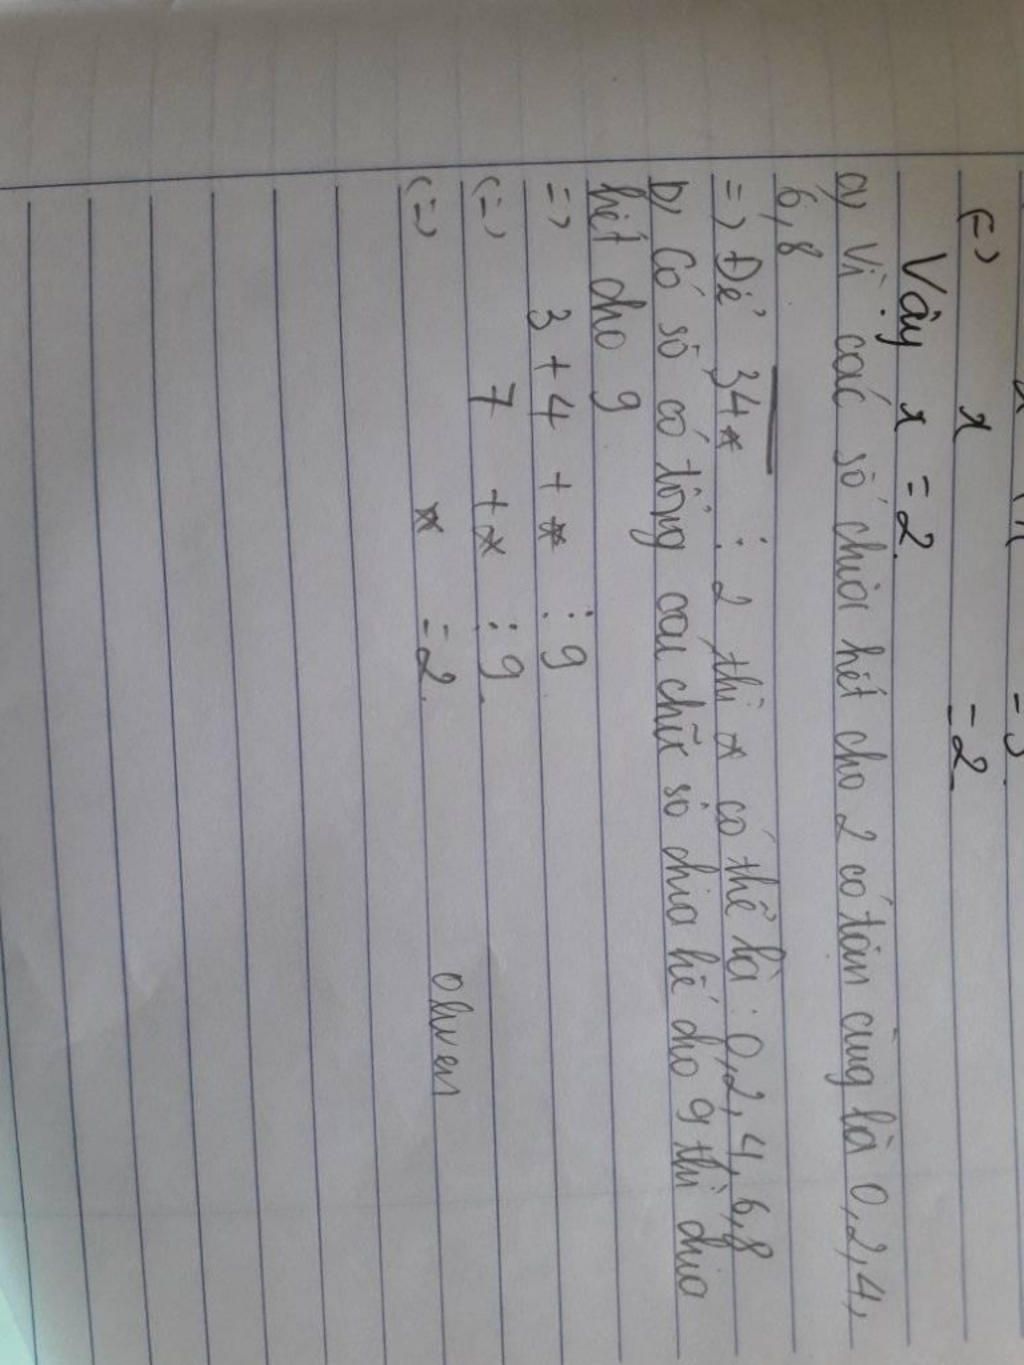 = 3
(=) x = 2
Vậy x = 2.
a) Vì các số chia hết cho 2 có tận cùng là 0,2,4,
6,8
=) Để 34* ⋮ 2 thì * có thể là : 0,2,4,6,8
b) Có số có tổng các chữ số chia hế cho 9 thì chia
hết cho 9
=) 3 + 4 + * ⋮ 9
(=) 7 + * ⋮ 9.
(=) * = 2.
olwen